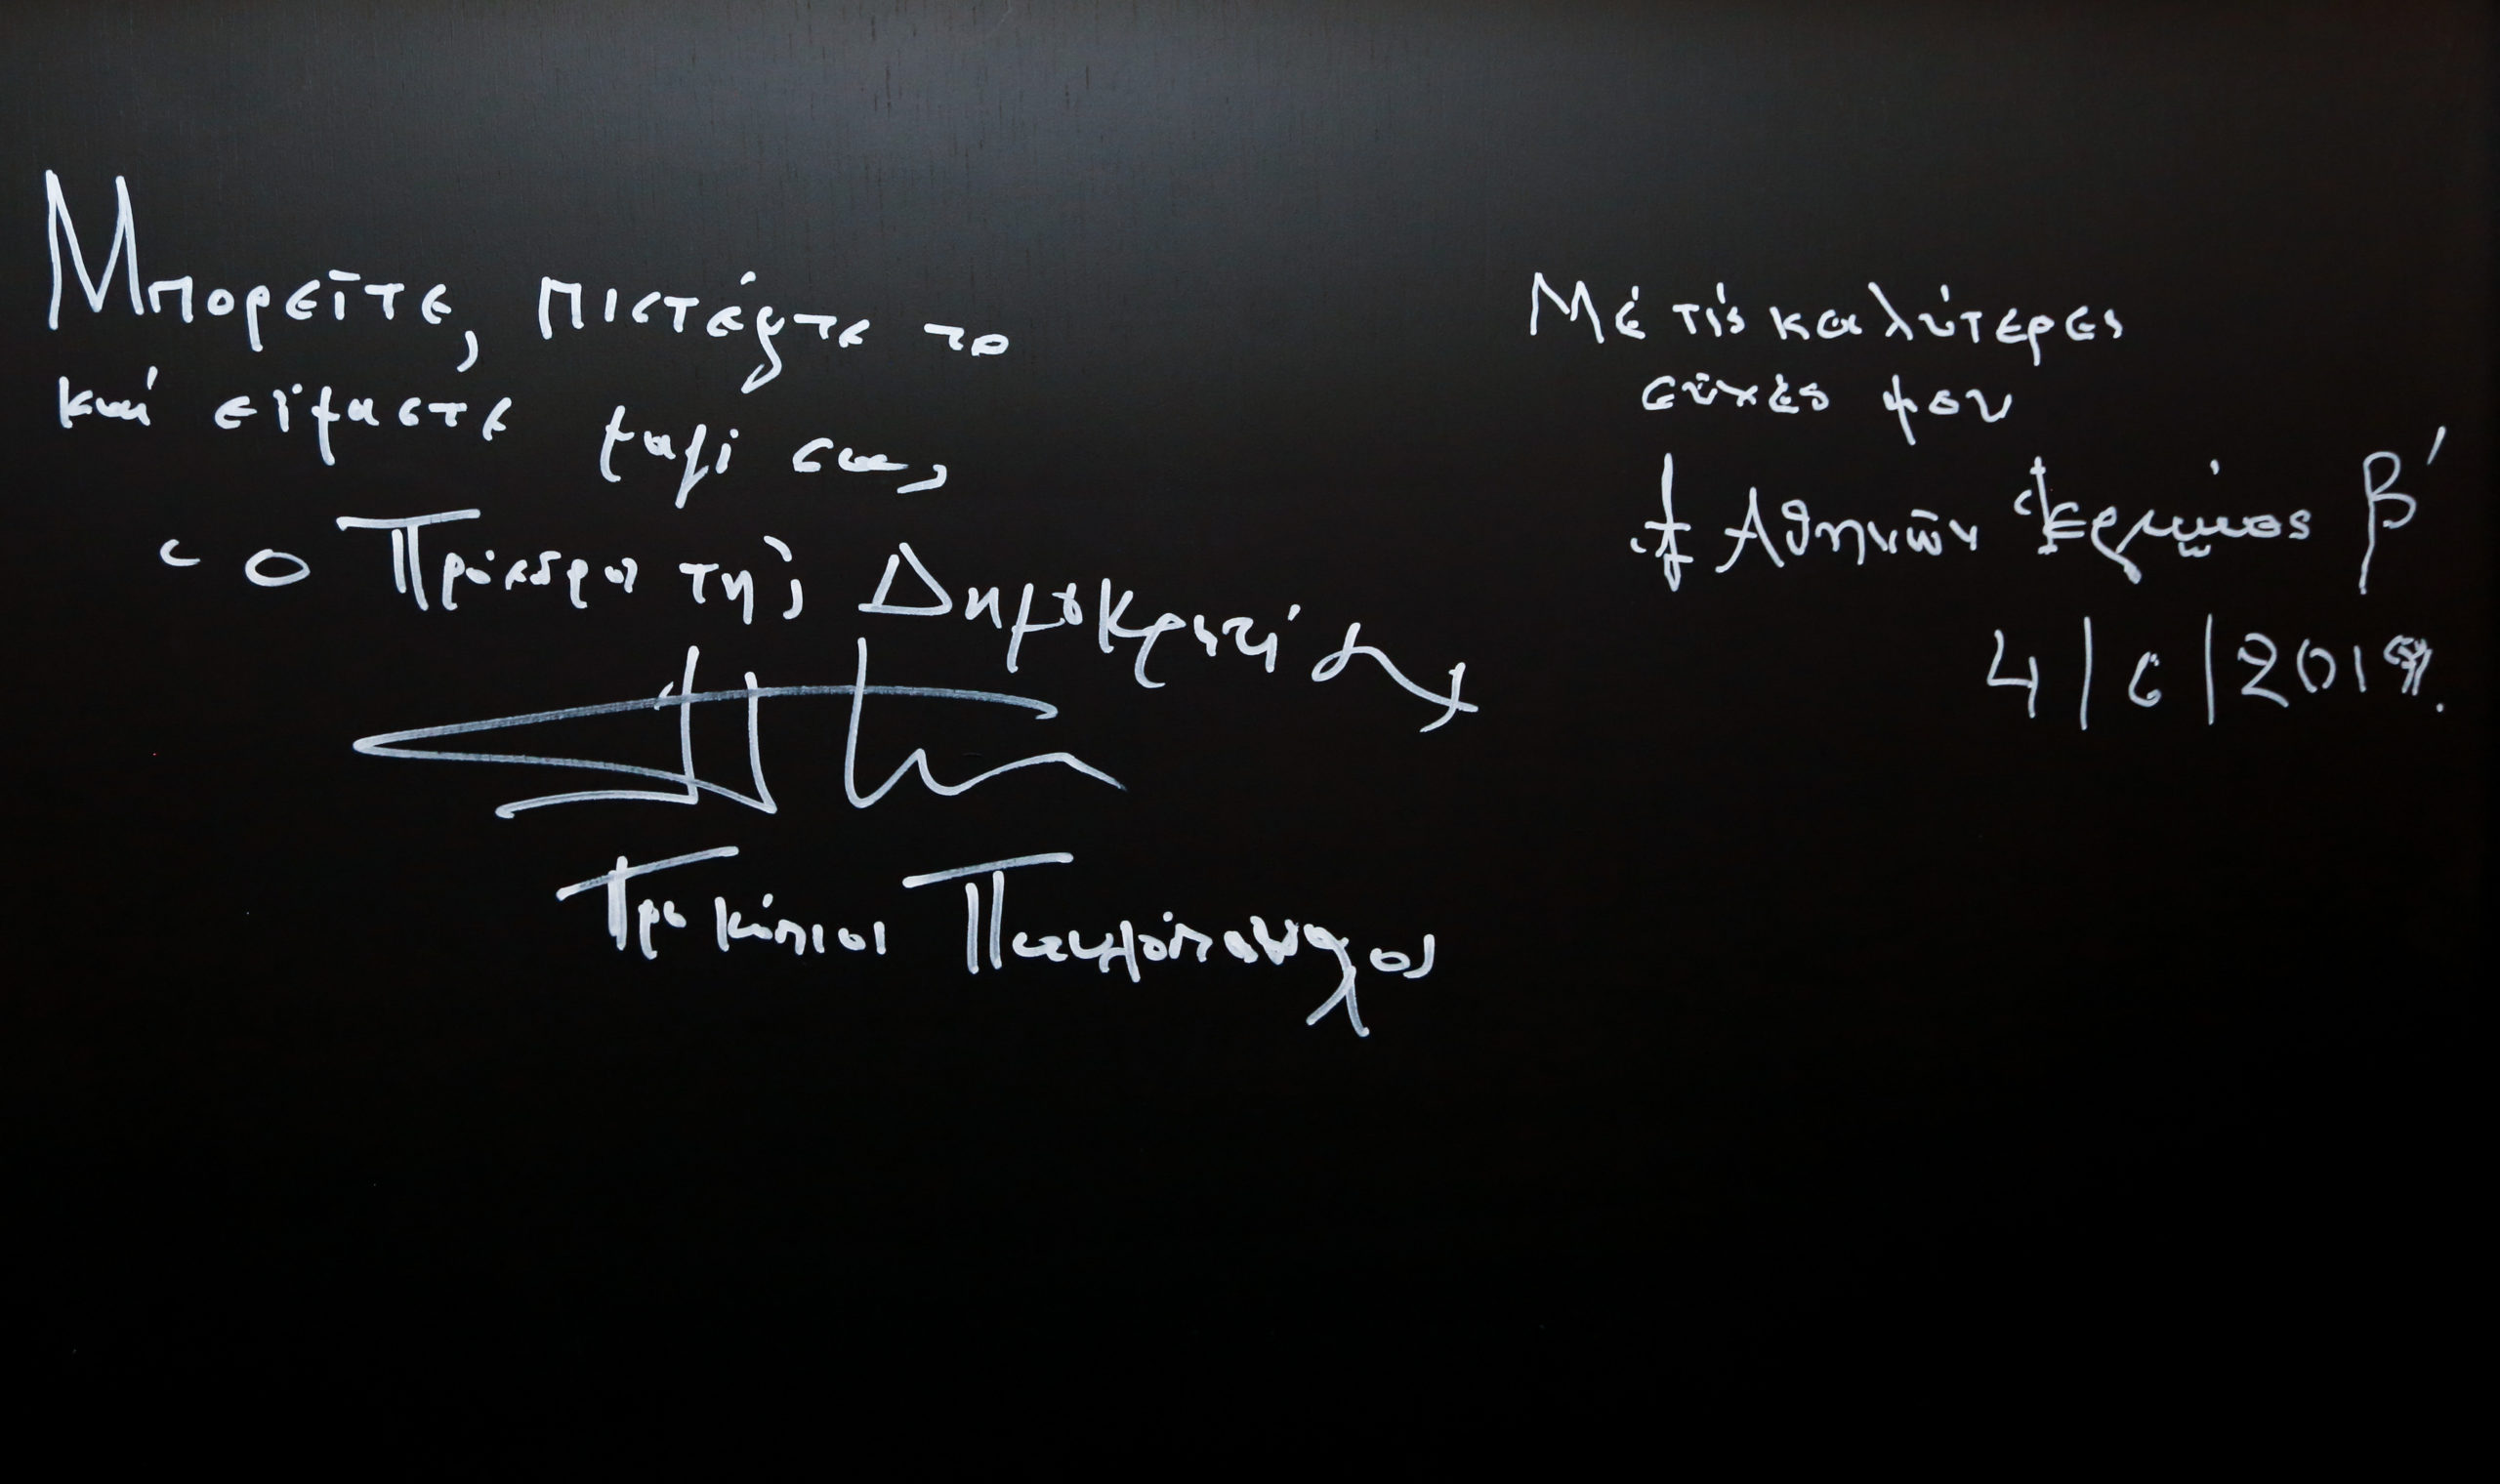 Μπορεῖτε, πιστέψτε το
καί εἴμαστε μαζί σας
Ὁ Πρόεδρος τῆς Δημοκρατίας
Προκόπιος Παυλόπουλος
Μέ τίς καλύτερες
εὐχές μου
† Ἀθηνῶν Ἱερώνυμος β΄
4/6/2019.